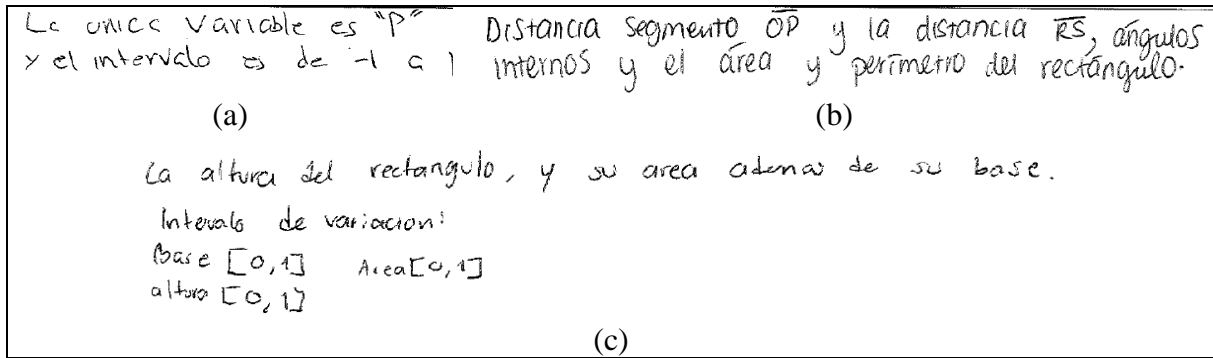 La unica variable es "P"
y el intervalo es de -1 a 1
Distancia segmento OP y la distancia RS, ángulos
internos y el área y perímetro del rectángulo.
(a)
(b)
La altura del rectangulo, y su area ademas de su base.
Intervalo de variacion:
Base [0,1] Area[0,1]
altura [0,1]
(c)